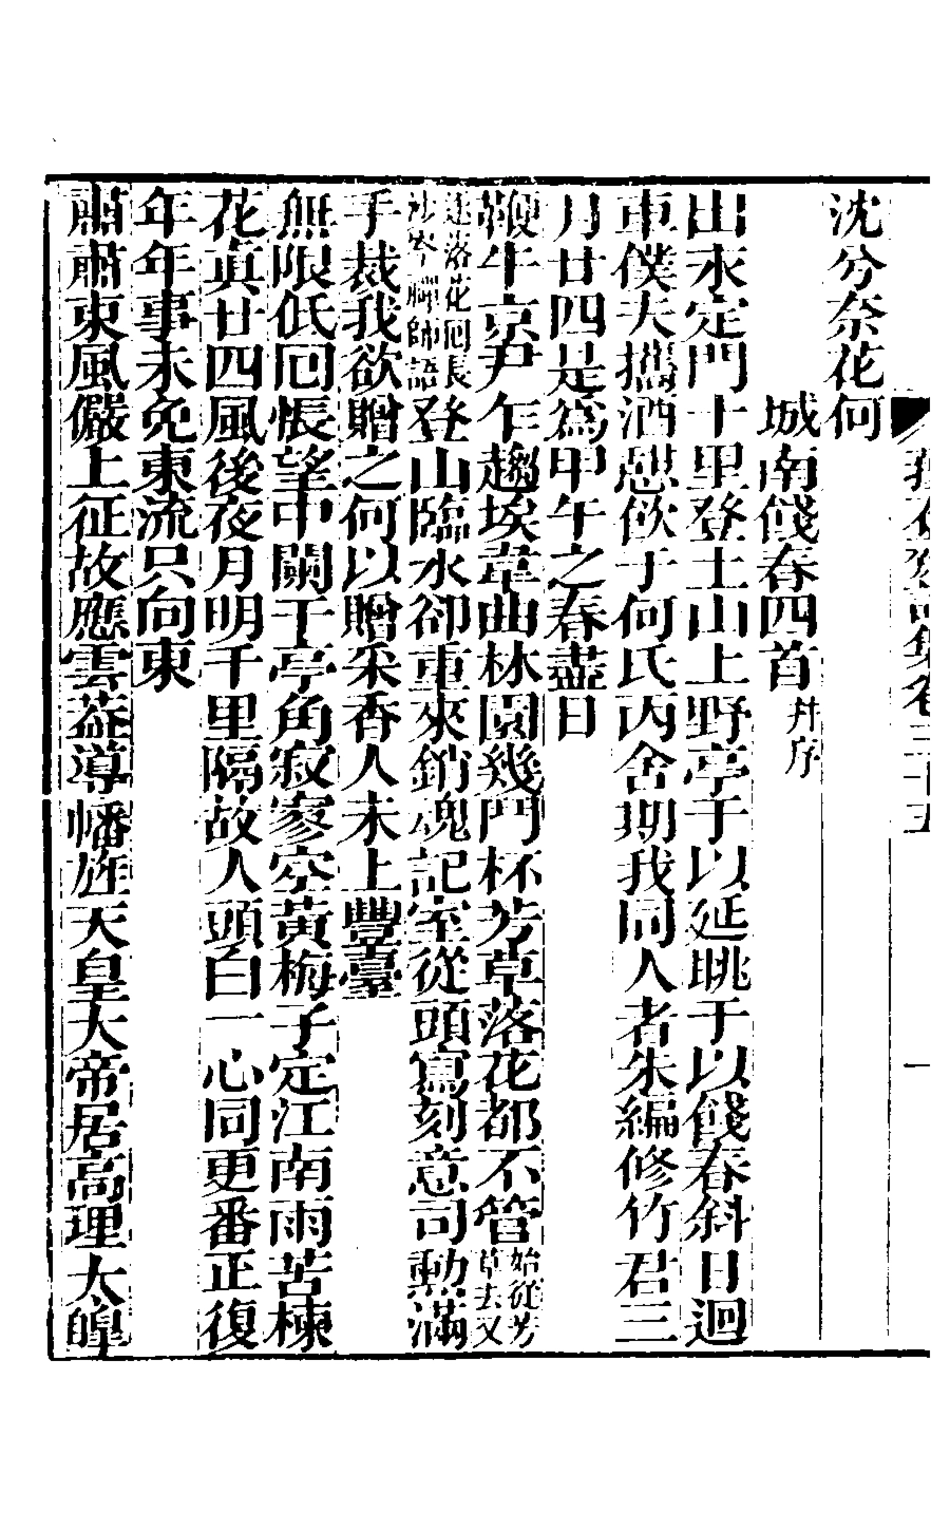 沈分奈花何
城南餞春四首并序
出永定門十里登土山上野亭于以延眺于以餞春斜日迴
車僕夫攜酒憩飲于何氏丙舍期我同人者朱編修竹君三
月廿四是爲甲午之春盡日
鞭牛京尹乍趨埃韋曲林園幾門杯芳草落花都不管始從芳草去又
逐落花囘長沙岑禪師語登山臨水卻重來銷魂記室從頭寫刻意司勳滿
手裁我欲贈之何以贈采香人未上豐臺
無限低囘悵望中闌干亭角寂寥空黃梅子定江南雨苦楝
花眞廿四風後夜月明千里隔故人頭白一心同更番正復
年年事未免東流只向東
肅肅東風儼上征故應雲葢導幡旌天皇大帝居高理太皥